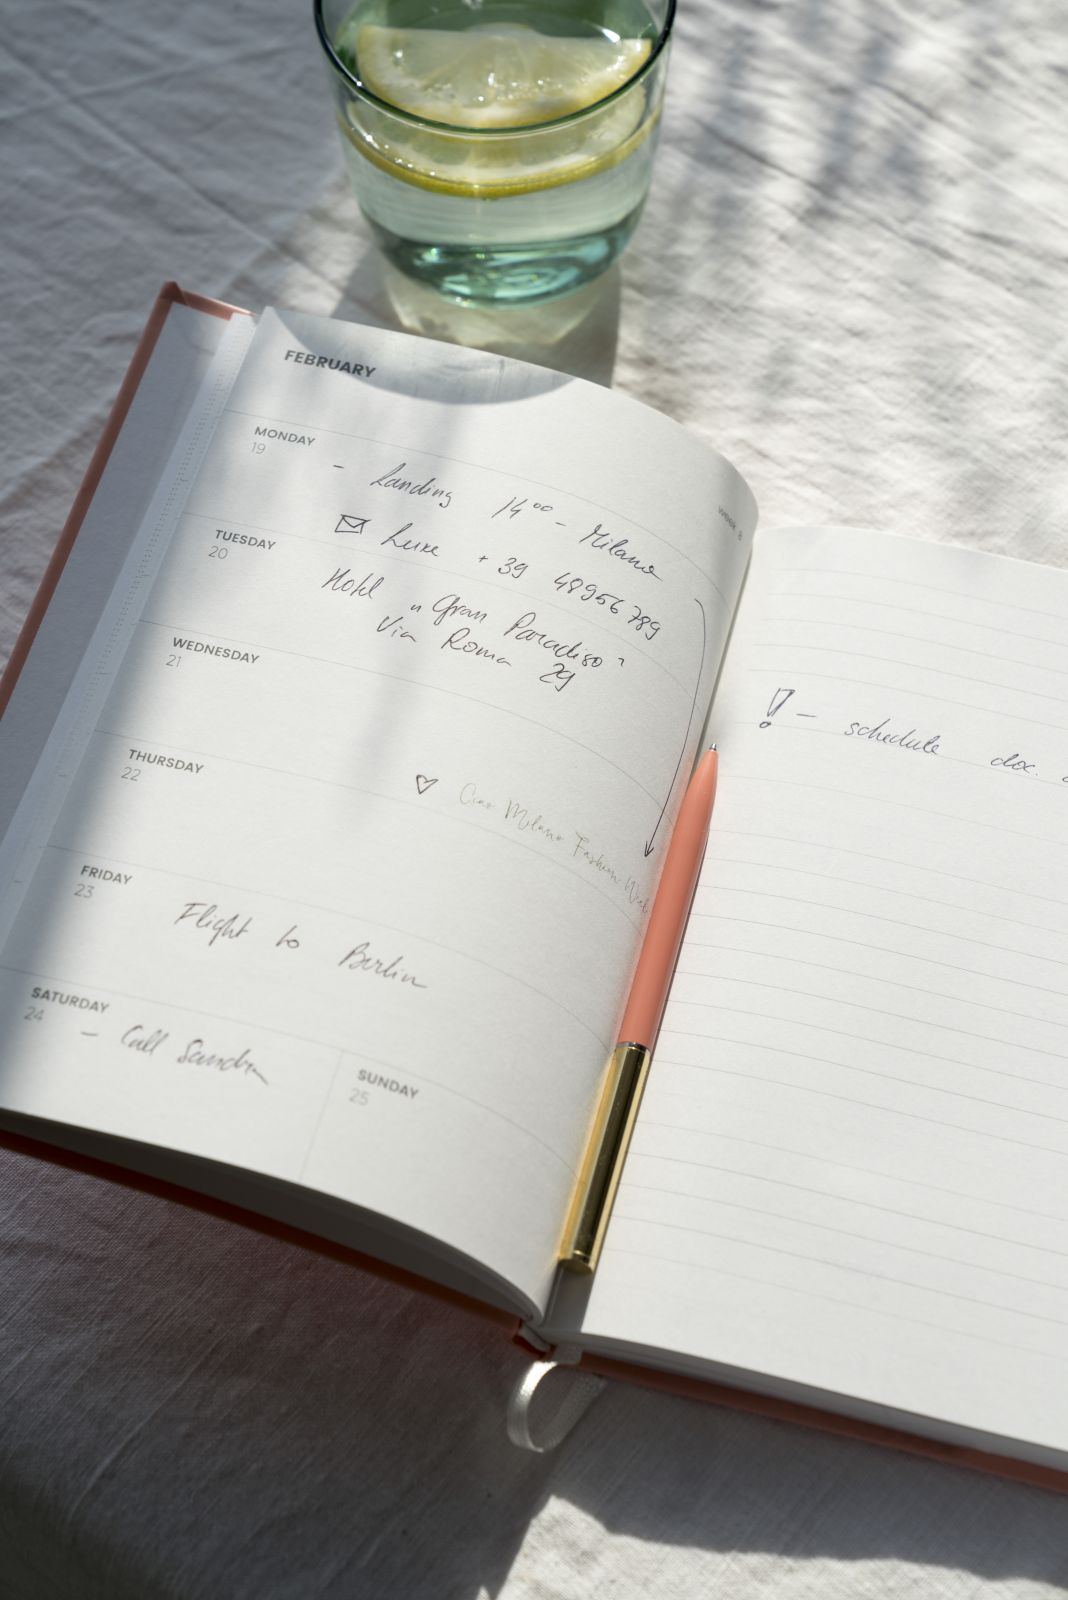 FEBRUARY
week 8
MONDAY
19
- Landing 14 00 - Milano
TUESDAY
20
Luke +39 48956789
Hotel "Gran Paradiso"
Via Roma 29
WEDNESDAY
21
THURSDAY
22
Ciao Milano Fashion
FRIDAY
23
Flight to Berlin
SATURDAY
24
- Call Sandra
SUNDAY
25
! - schedule doc.